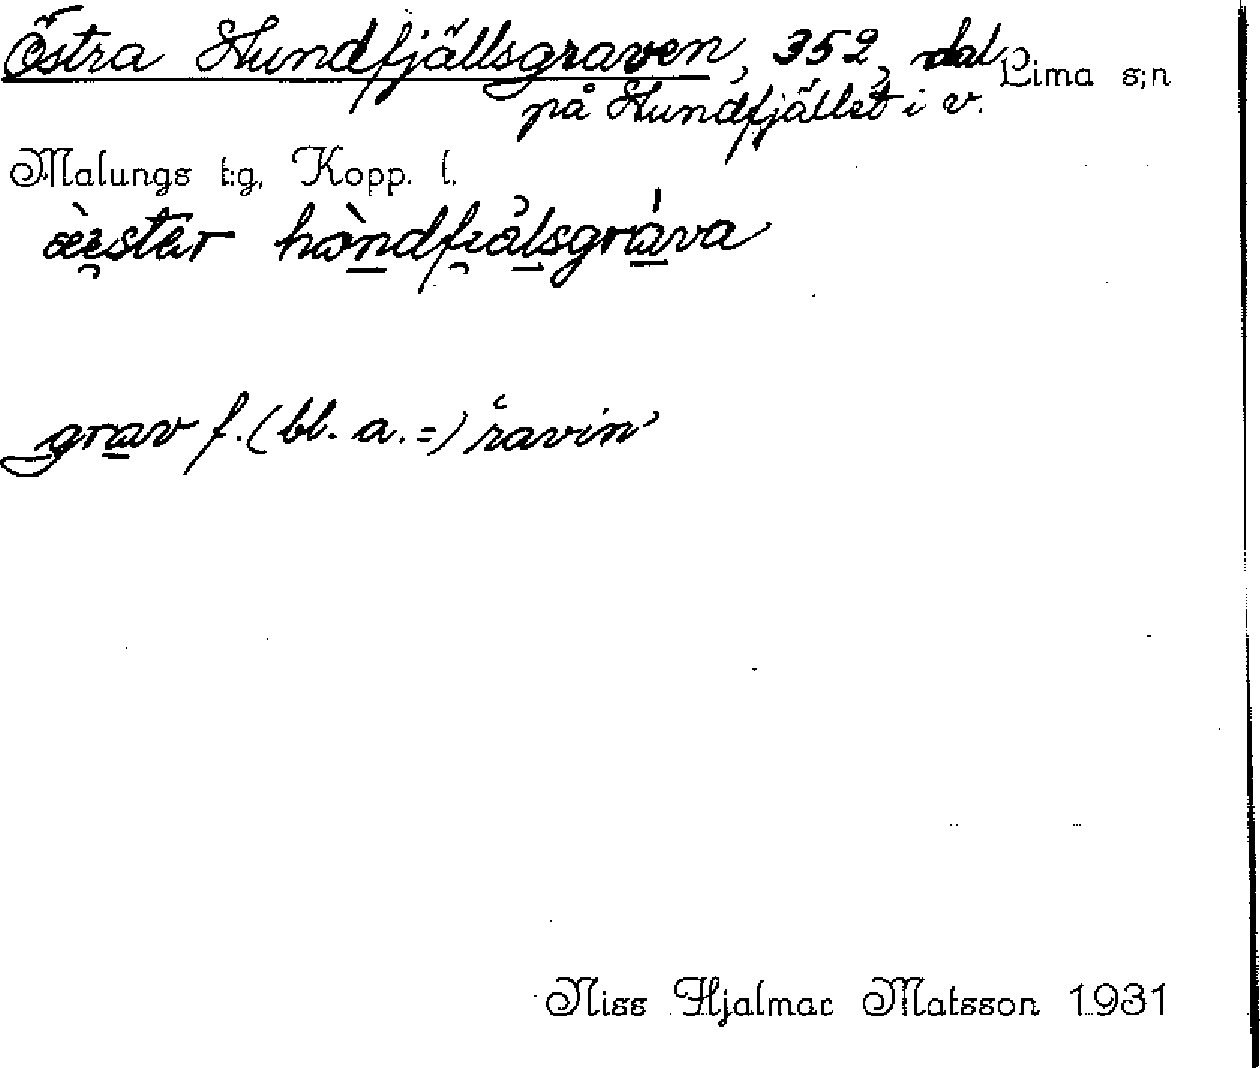 Östra Hundfjällsgraven, 352, dal Lima s:n
på Hundfjället i v.
Malungs t:g, Kopp. l.
grav f. (bl. a. =) ravin
Niss Hjalmar Matsson 1931